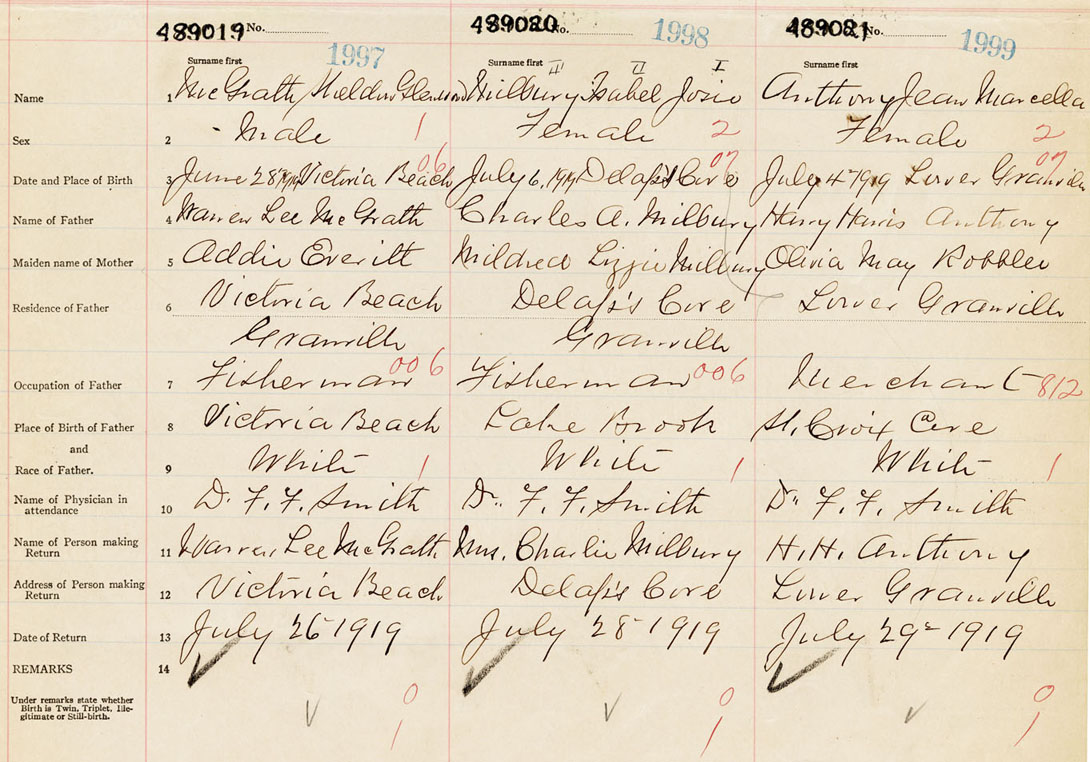 489019 No. 489020 No. 489021 No.
1997 1998 1999
Surname first Surname first III II I Surname first
Name 1 McGrath, Milbury Isabel Josie Anthony Jean Marcella
Sex 2 Male 1 Female 2 Female 2
06 07 07
Date and Place of Birth 3 June 28 1919 Victoria Beach July 6, 1919 Delap's Cove July 4 1919 Lower Granville
Name of Father 4 Warren Lee McGrath Charles A. Milbury Harry Harris Anthony
Maiden name of Mother 5 Addie Everitt Mildred Lizzie Milbury Olivia May Robblee
Residence of Father 6 Victoria Beach Delap's Cove Lower Granville
Granville Granville
Occupation of Father 7 Fisherman 006 Fisherman 006 Merchant 812
Place of Birth of Father 8 Victoria Beach Lake Brook St. Croix Cove
and
Race of Father. 9 White 1 White 1 White 1
Name of Physician in
attendance 10 D. F. F. Smith Dr. F. F. Smith Dr. F. F. Smith
Name of Person making
Return 11 Warren Lee McGrath Mrs. Charlie Milbury H. H. Anthony
Address of Person making
Return 12 Victoria Beach Delap's Cove Lower Granville
Date of Return 13 July 26 1919 July 28 1919 July 29 1919
REMARKS 14
Under remarks state whether
Birth is Twin, Triplet, Ille-
gitimate or Still-birth.
0 0 0
1 1 1